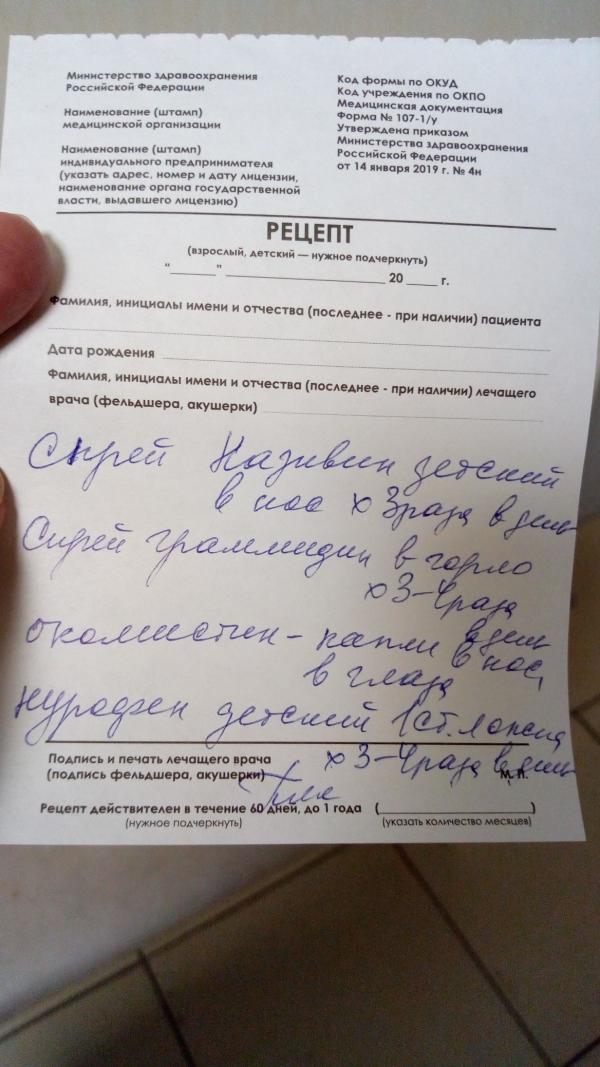 Министерство здравоохранения
Российской Федерации
Наименование (штамп)
медицинской организации
Наименование (штамп)
индивидуального предпринимателя
(указать адрес, номер и дату лицензии,
наименование органа государственной
власти, выдавшего лицензию)
Код формы по ОКУД
Код учреждения по ОКПО
Медицинская документация
Форма № 107-1/у
Утверждена приказом
Министерства здравоохранения
Российской Федерации
от 14 января 2019 г. № 4н
РЕЦЕПТ
(взрослый, детский — нужное подчеркнуть)
"______" ______________________ 20 ____ г.
Фамилия, инициалы имени и отчества (последнее - при наличии) пациента
Дата рождения
Фамилия, инициалы имени и отчества (последнее - при наличии) лечащего
врача (фельдшера, акушерки)
Спрей Називин детский
в нос х 3 раза в день
Спрей граммидин в горло
х 3-4 раза
в день
окомистин - капли в нос,
в глаза
нурофен детский 1 ст. ложка
х 3-4 раза в день
Подпись и печать лечащего врача
(подпись фельдшера, акушерки)
М.П.
Рецепт действителен в течение 60 дней, до 1 года (______________________)
(нужное подчеркнуть)
(указать количество месяцев)